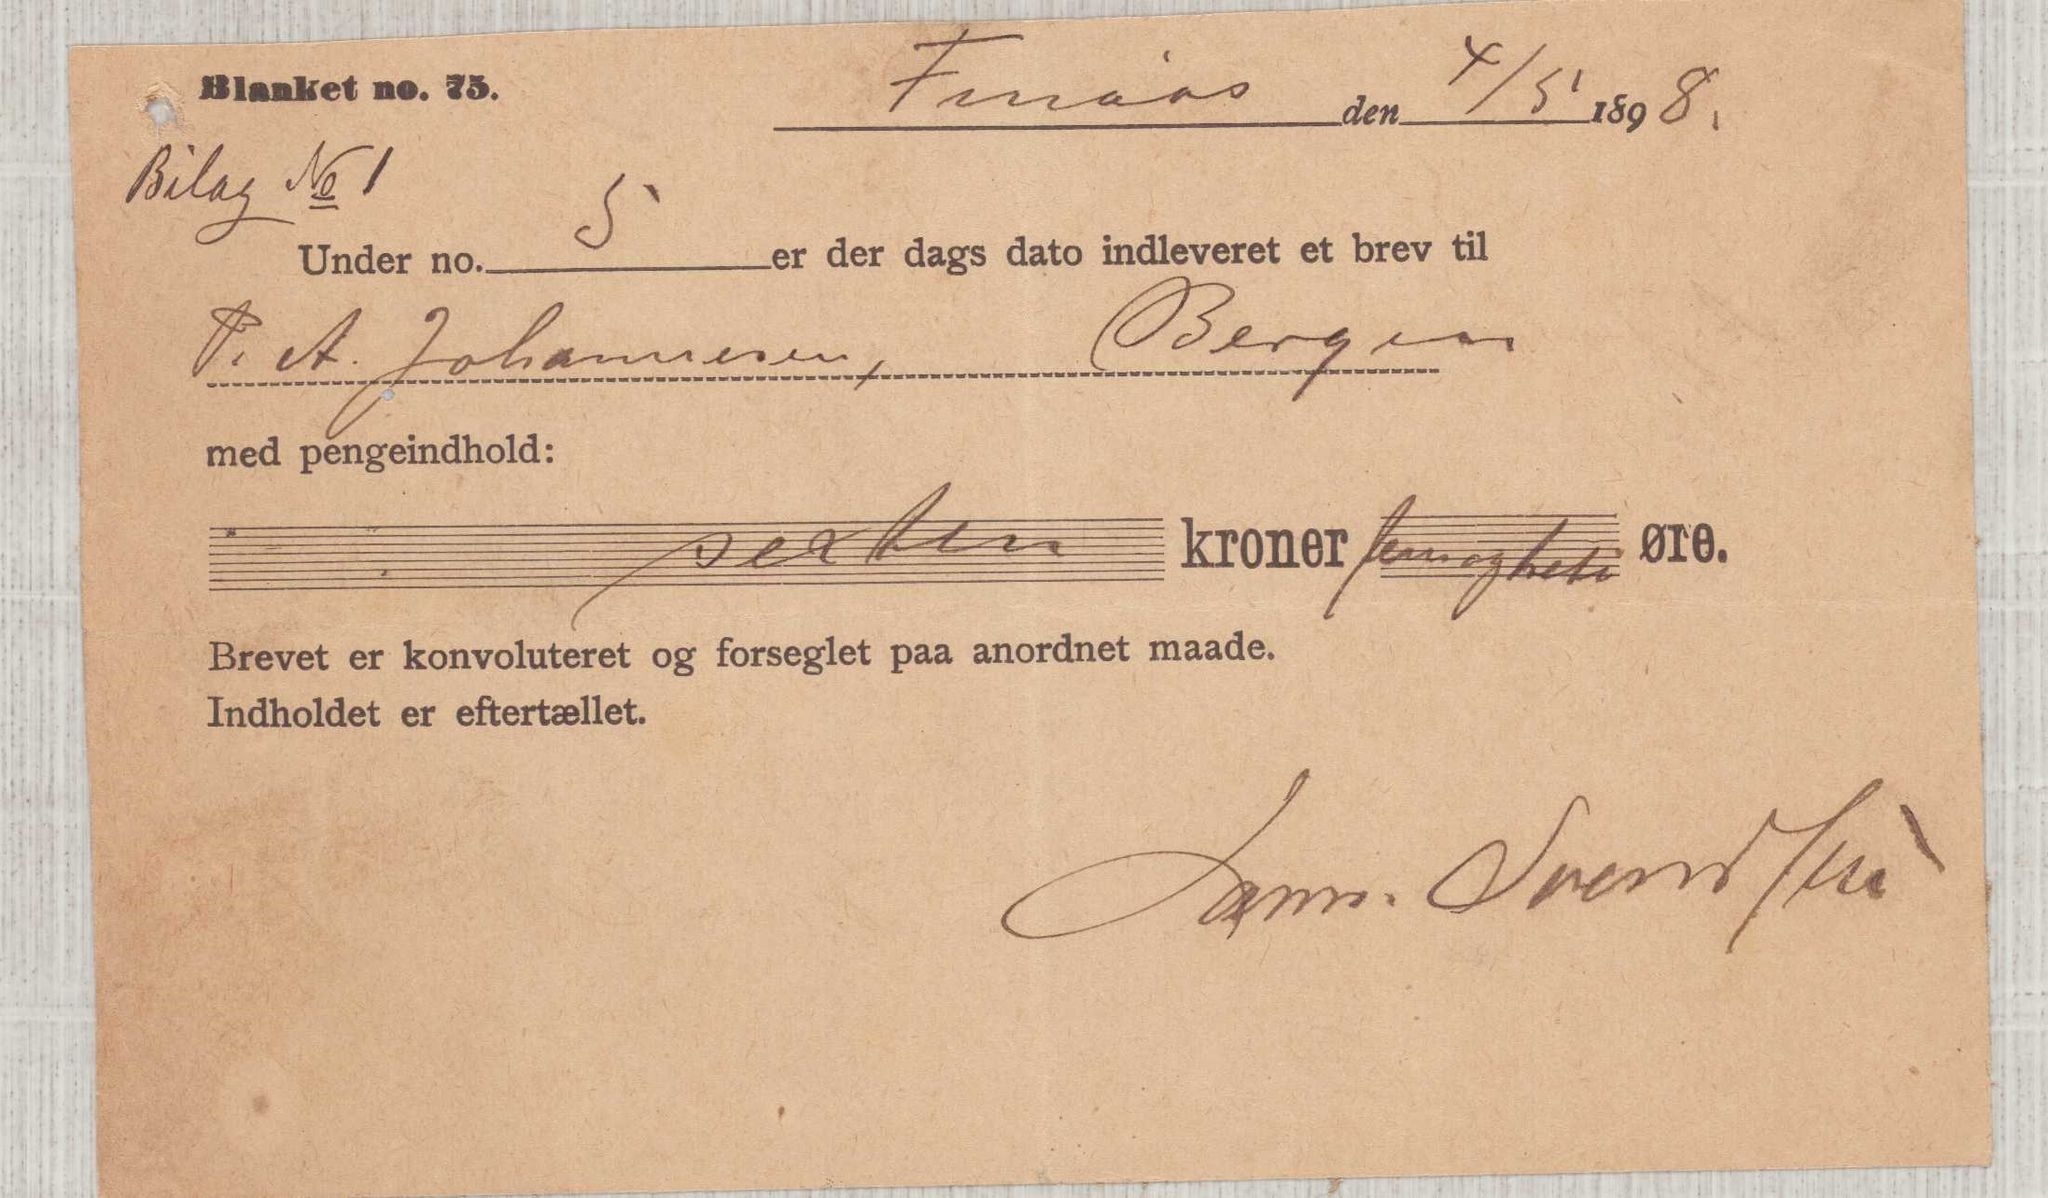 Blanket no. 75.
Finnaas den 4/5 1898.
Bilag No 1
Under no. 5 er der dags dato indleveret et brev til
P. A. Johannesen, Bergen
med pengeindhold:
sexten kroner femogtreti øre.
Brevet er konvoluteret og forseglet paa anordnet maade.
Indholdet er eftertællet.
Svendsen